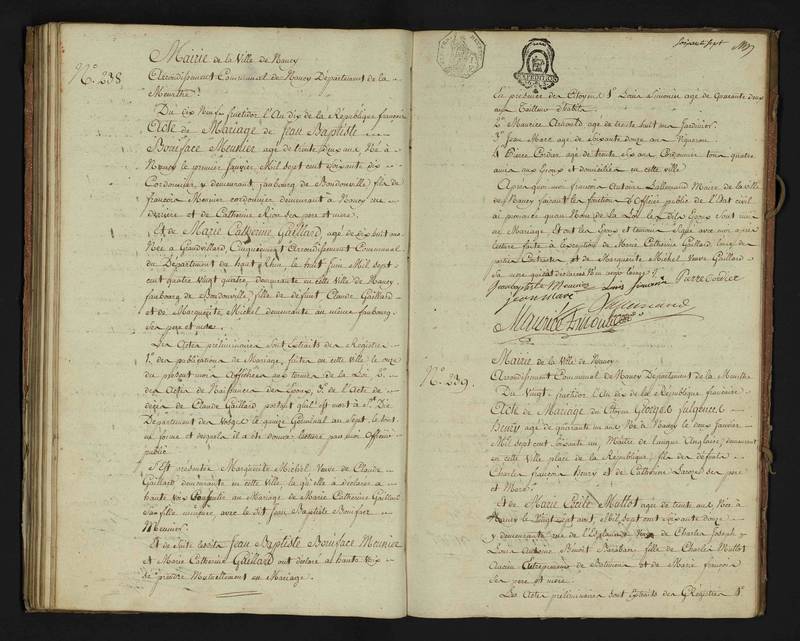 Mairie de la Ville de Nancy
N.° 238.
Arrondissement Communal de Nancy Département de la
Meurthe.
Du dix Neuf fructidor l'An dix de la République française
Acte de Mariage de Jean Baptiste
Boniface Meunier agé de trente deux ans Né à
Nancy le premier janvier Mil Sept cent soixante dix
Cordonnier y demeurant, faubourg de Bondonville, fils de
françois Meunier cordonnier demeurant à Nancy rue
derriere et de Catherine Rion ses pere et mere.
Et de Marie Catherine Gaillard, agée de dix huit ans
Née à Grandvillard, Cinquieme Arrondissement Communal
du Département du haut Rhin, le huit Juin Mil Sept
cent quatre vingt quatre, demeurante en cette ville de Nancy
faubourg de Bondonville, fille de défunt Claude Gaillard
et de Marguerite Michel demeurante au même faubourg
Ses pere et mere.
Les Actes préliminaires sont Extraits des Registres
1.° des publications de Mariage, faites en cette ville le onze
du présent mois Affichées aux termes de la Loi 2.°
des Actes de Naissances des Epoux, 3.° de l'Acte de
décès de Claude Gaillard portant qu'il est mort à S.t Dié
Département des Vosges le quinze Germinal an Sept. le tout
en forme et desquels il a été donné lecture par moi Officier
public
S'Est présentée Marguerite Michel Veuve de Claude
Gaillard demeurante en cette Ville, laquelle a déclaré à
haute Voix Consentir au Mariage de Marie Catherine Gaillard
Sa fille mineure, avec le dit Jean Baptiste Boniface
Meunier.
Et de Suite lesdits Jean Baptiste Boniface Meunier
et Marie Catherine Gaillard ont déclaré à haute Voix
se prendre Mutuellement en Mariage.
soixante sept
En présence des Citoyens 1.° Louis Simonin agé de Quarante deux
ans Tailleur d'habits
2.° Maurice Arnould agé de trente huit ans Jardinier.
3.° Jean Marc agé de Soixante douze ans Vigneron
4.° Pierre Cordier agé de trente six ans Cordonnier tous quatre
amis aux Epoux et domiciliés en cette ville
Après quoi moi françois Antoine Lallemand Maire de la ville
de Nancy faisant les fonctions d'Officier public de l'Etat civil
ai prononcé qu'au Nom de la Loi les dits Epoux sont unis
en Mariage Et ont les Epoux et temoins Signé avec moi après
lecture faite à l'exception de Marie Catherine Gaillard l'une des
parties Contractantes et de Marguerite Michel Veuve Gaillard
Sa mere qui ont déclaré
Jean baptiste Meunier Louis Simonin Pierre Cordier
Jean Marc Lallemand
Maurice Arnould
Mairie de la Ville de Nancy
N.° 239.
Arrondissement Communal de Nancy Département de la Meurthe
Du Vingt fructidor l'An dix de la République française
Acte de Mariage du Citoyen Georges fulgence
Henry agé de quarante un ans Né à Nancy le deux Janvier
Mil Sept cent Soixante un, Maitre de langue Anglaise, demeurant
en cette ville place de la République, fils des défunts
Charles françois Henry et de Catherine ses pere
et Mere.
Et de Marie Cécile Mottot agée de trente ans Née à
Nancy le Vingt Sept août, Mil Sept cent Soixante douze
y demeurante rue de l'Esplanade de Charles Joseph
Louis Antoine fille de Charles Mottot
Ancien Entrepreneur de Batimens et de Marie françois
Ses pere et mere.
Les Actes préliminaires sont Extraits des Régistres 1.°